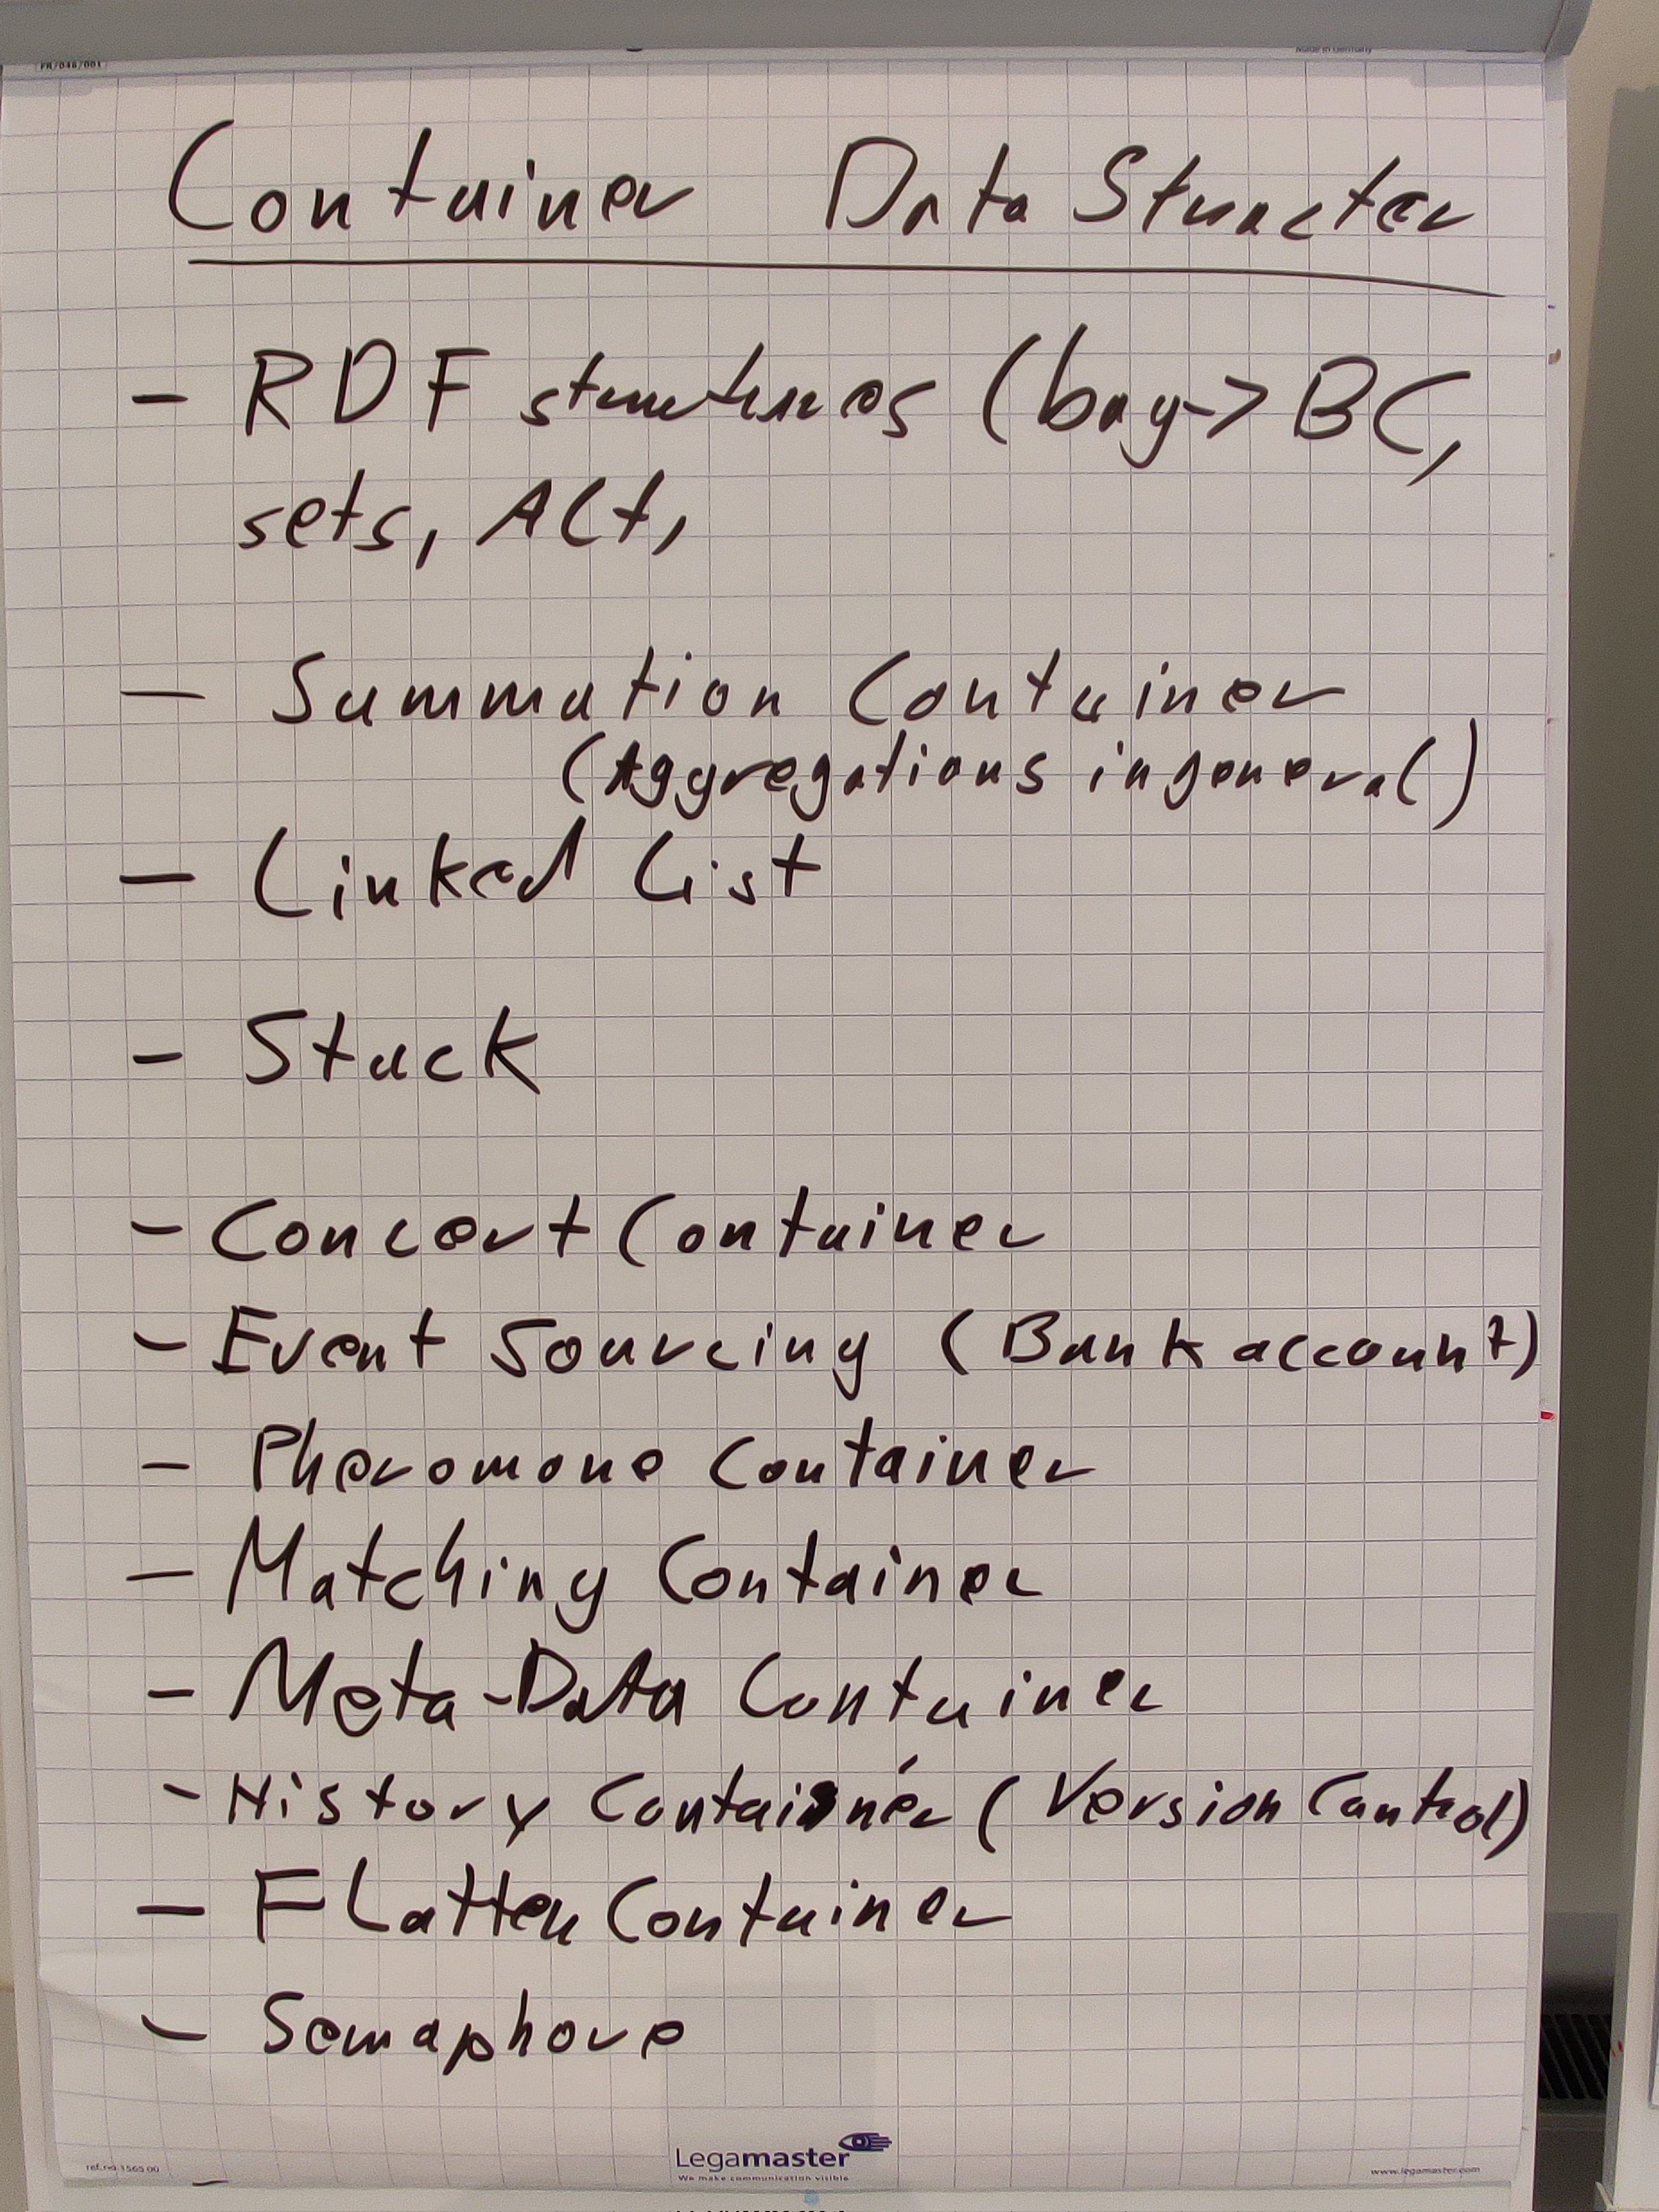 FR/046/001
Made in Germany
Container Data Structer
- RDF structures (bag-> BC,
sets, Alt,
- Summation Container
(Aggregations in general)
- Linked List
- Stack
- Concert Container
- Event Sourcing (Bank account)
- Pheromone Container
- Matching Container
- Meta-Data Container
- History Container (Version Control)
- Flatten Container
- Semaphore
Legamaster
We make communication visible
ref.no 1565 00
www.legamaster.com